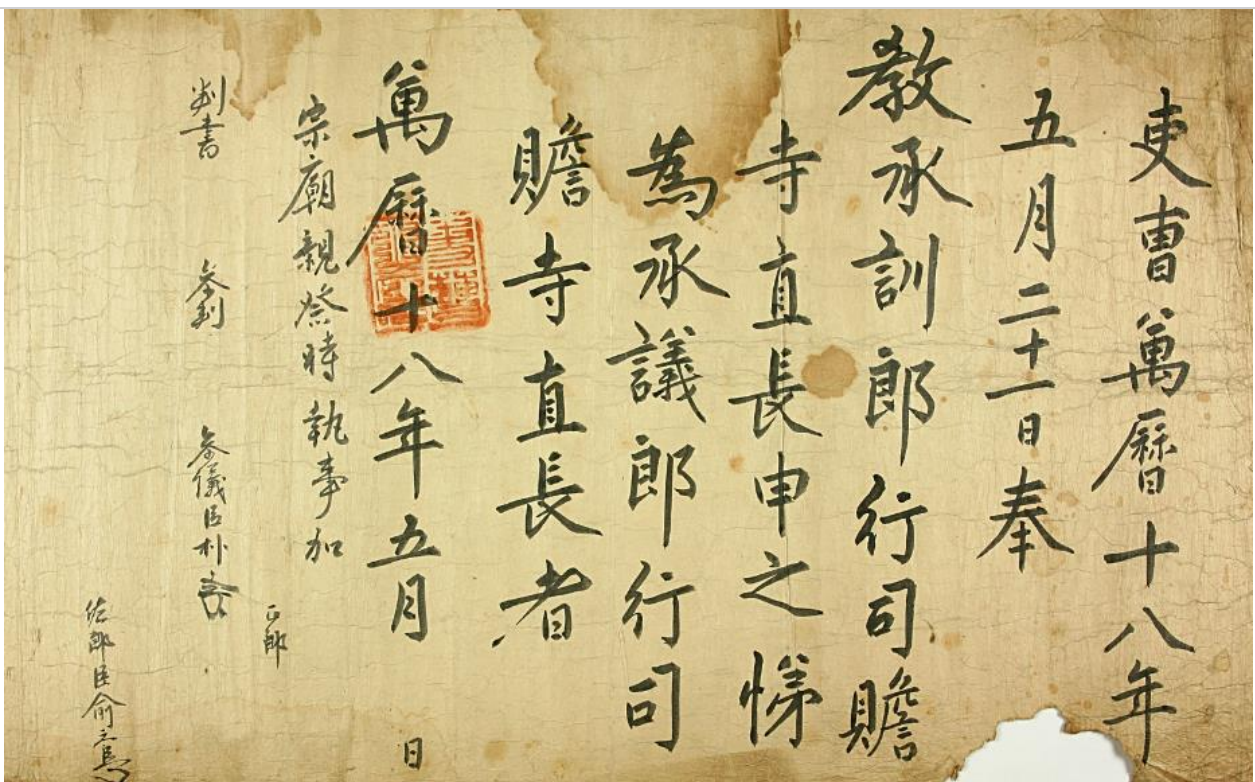 吏曹萬曆十八年
五月二十一日奉
教承訓郎行司贍
寺直長申之悌
為承議郎行司
贍寺直長者
萬曆十八年五月 日
宗廟親祭時執事加
判書 參判 參議臣朴
正郎
佐郎臣俞